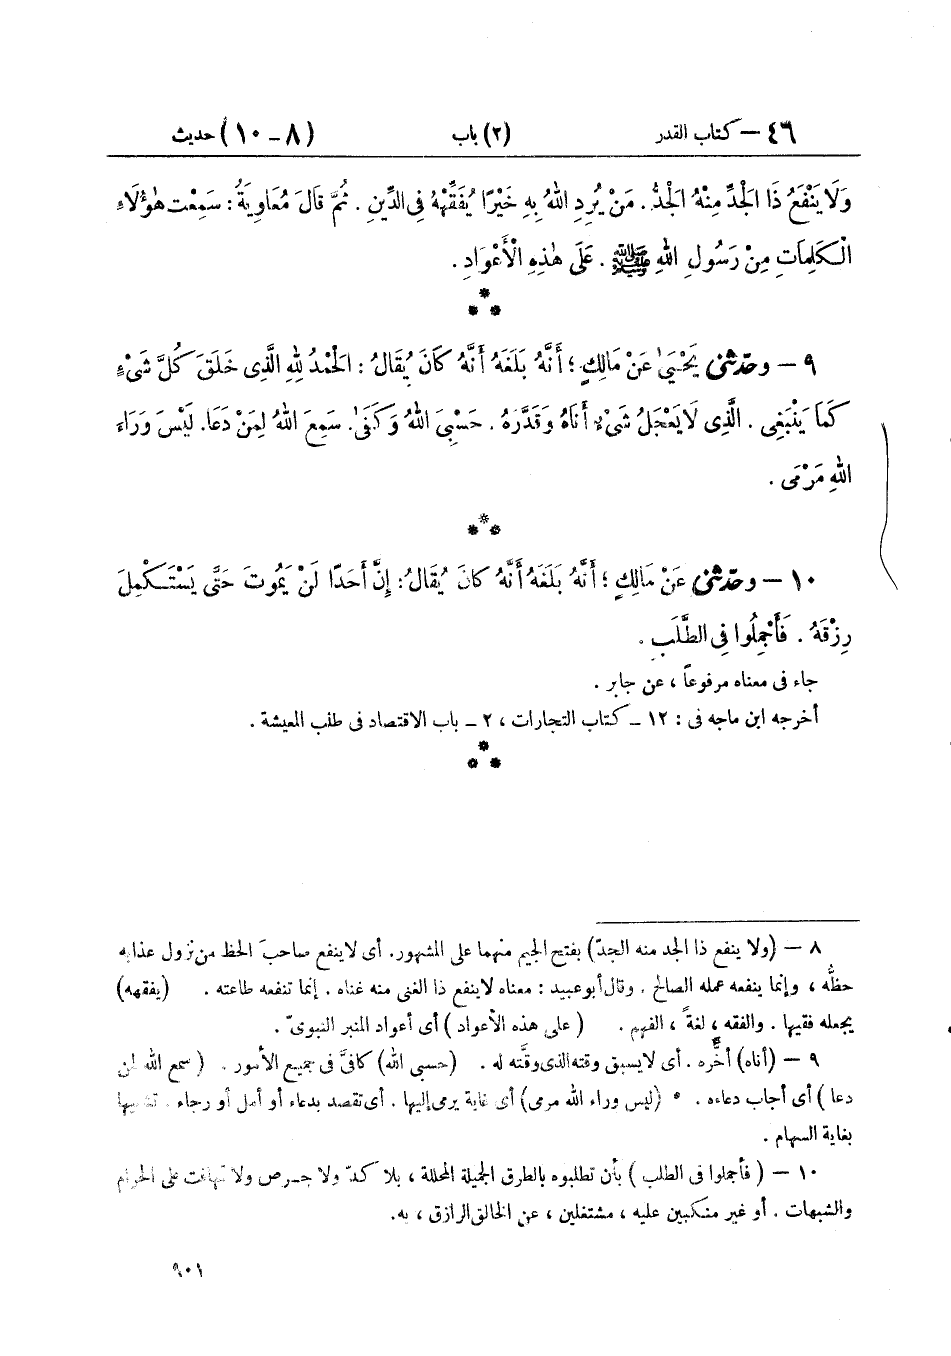 ٤٦ – كتاب القدر (٢) باب (٨ – ١٠) حديث
وَلَا يَنْفَعُ ذَا الْجَدِّ مِنْهُ الْجَدُّ. مَنْ يُرِدِ اللهُ بِهِ خَيْرًا يُفَقِّهْهُ فِى الدِّينِ. ثُمَّ قَالَ مُعَاوِيَةُ: سَمِعْتُ هٰؤُلَاءِ
الْكَلِمَاتِ مِنْ رَسُولِ اللهِ ﷺ. عَلَى هٰذِهِ الْأَعْوَادِ.
* * *
٩ – وحدّثنى يَحْيَىٰ عَنْ مَالِكٍ؛ أَنَّهُ بَلَغَهُ أَنَّهُ كَانَ يُقَالُ: الْحَمْدُ لِلهِ الَّذِى خَلَقَ كُلَّ شَىْءٍ
كَمَا يَنْبَغِى. الَّذِى لَا يَعْجَلُ شَىْءٌ أَنَاهُ وَقَدَّرَهُ. حَسْبِىَ اللهُ وَكَفَىٰ. سَمِعَ اللهُ لِمَنْ دَعَا. لَيْسَ وَرَاءَ
اللهِ مَرْمًى.
* * *
١٠ – وحدّثنى عَنْ مَالِكٍ؛ أَنَّهُ بَلَغَهُ أَنَّهُ كَانَ يُقَالُ: إِنَّ أَحَدًا لَنْ يَمُوتَ حَتَّى يَسْتَكْمِلَ
رِزْقَهُ. فَأَجْمِلُوا فِى الطَّلَبِ.
جاء فى معناه مرفوعاً، عن جابر.
أخرجه ابن ماجه فى: ١٢ – كتاب التجارات، ٢ – باب الاقتصاد فى طلب المعيشة.
* * *
٨ – (ولا ينفع ذا الجد منه الجدّ) بفتح الجيم منهما على المشهور. أى لا ينفع صاحبَ الحظ من نزول عذابه
حظُّه، وإنما ينفعه عمله الصالح. وقال أبو عبيد: معناه لاينفع ذا الغنى منه غناه. إنما تنفعه طاعته. (يفقهه)
يجعله فقيها. والفقه، لغةً، الفهم. (على هذه الأعواد) أى أعواد المنبر النبوىّ.
٩ – (أناه) أخَّره. أى لا يسبق وقته الذى وقَّته له. (حسبى الله) كافىَّ فى جميع الأمور. (سمع الله لمن
دعا) أى أجاب دعاءه. (ليس وراء الله مرمى) أى غاية يرمى إليها. أى تقصد بدعاء أو أمل أو رجاء. تشبيها
بغاية السهام.
١٠ – (فأجملوا فى الطلب) بأن تطلبوه بالطرق الجميلة المحللة، بلا كدّ ولا حرص ولا تهافت على الحرام
والشبهات. أو غير منكبين عليه، مشتغلين، عن الخالق الرازق، به.
٩٠١